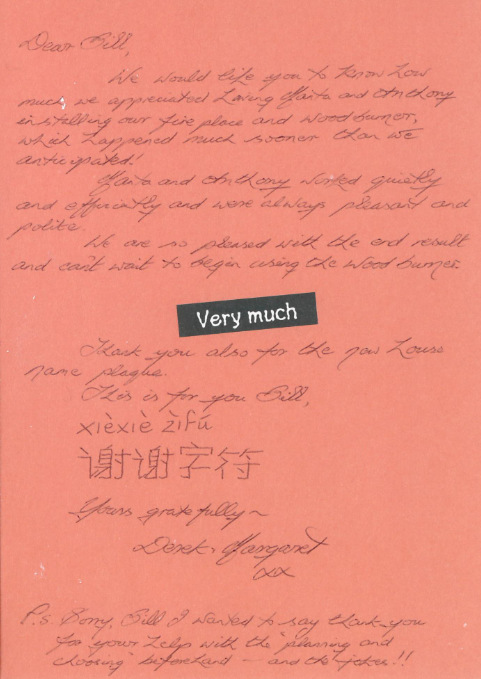 Dear Gill,
We would like you to know how
much we appreciated having Maita and Anthony
installing our fire place and woodburner,
which happened much sooner than we
anticipated!
Maita and Anthony worked quietly
and efficiently and were always pleasant and
polite.
We are so pleased with the end result
and can't wait to begin using the wood burner.
Very much
Thank you also for the new house
name plaque.
This is for you Gill,
xièxiè zìfú
谢谢字符
Yours gratefully ~
Derek, Margaret
xx
P.S. Sorry, Gill I wanted to say thank you
for your help with the "planning and
choosing" beforehand – and the !!